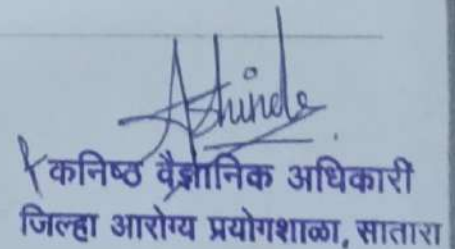 Ashinde
कनिष्ठ वैज्ञानिक अधिकारी
जिल्हा आरोग्य प्रयोगशाळा, सातारा